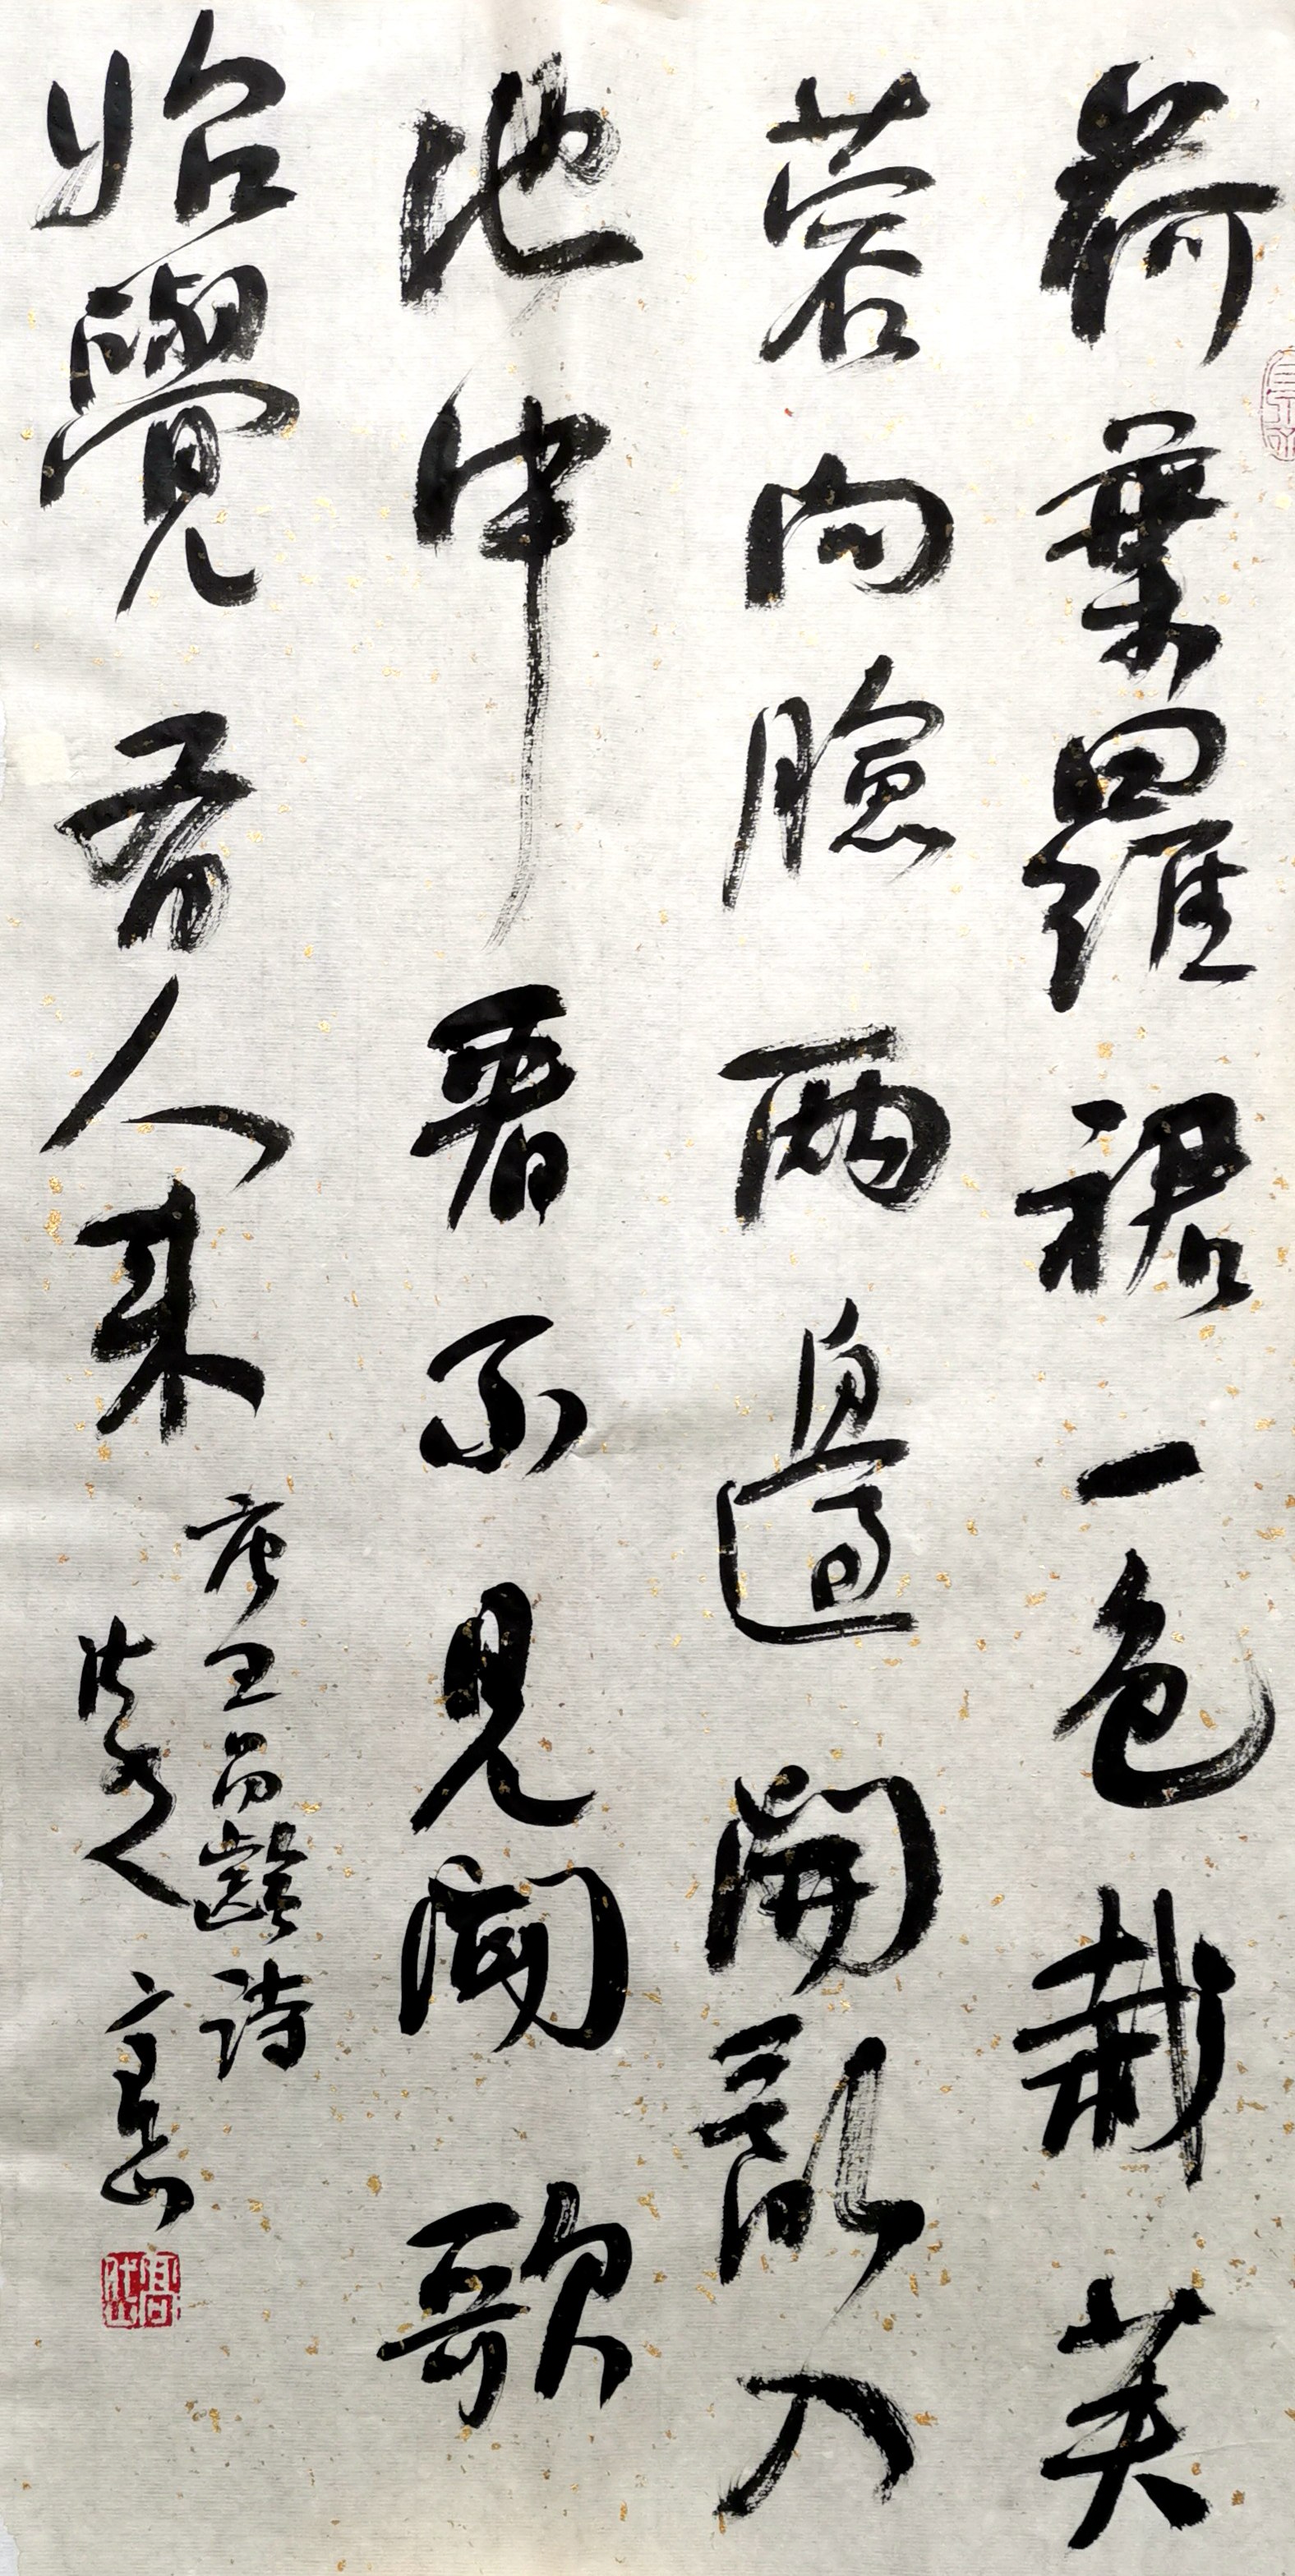 荷葉羅裙一色裁芙
蓉向臉兩邊開亂入
池中看不見聞歌
始覺有人來
唐王昌齡詩
高岱